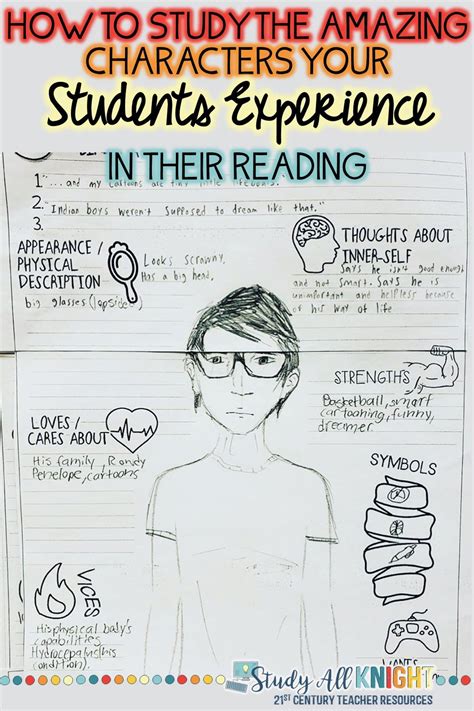 HOW TO STUDY THE AMAZING
CHARACTERS YOUR
Students Experience
IN THEIR READING
1. "...and my cartoons are tiny little lifeboats."
2. "Indian boys weren't supposed to dream like that."
3.
APPEARANCE /
PHYSICAL
DESCRIPTION
big glasses (lopside)
Looks scrawny,
Has a big head,
THOUGHTS ABOUT
INNER-SELF
Says he isn't good enough
and not smart. Says he is
unimportant and helpless because
of his way of life
STRENGTHS
Basketball, smart
cartooning, funny,
dreamer
LOVES /
CARES ABOUT
His family, Rowdy
Penelope, cartoons
SYMBOLS
VICES
His physical body's
capabilities
Hydrocephalus (his
condition).
Study All KNIGHT
21ST CENTURY TEACHER RESOURCES